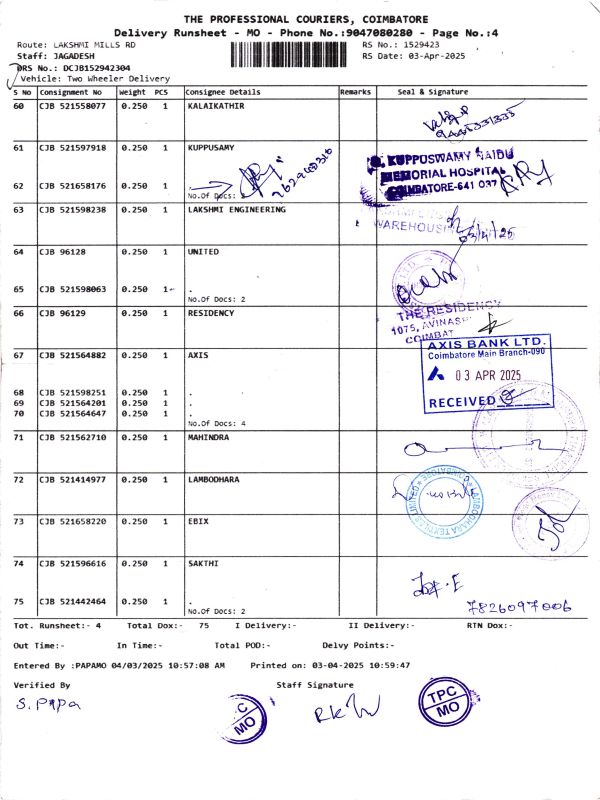 THE PROFESSIONAL COURIERS, COIMBATORE
Delivery Runsheet - MO - Phone No.:9047080280 - Page No.:4
Route: LAKSHMI MILLS RD RS No.: 1529423
Staff: JAGADESH RS Date: 03-Apr-2025
DRS No.: DCJB152942304
Vehicle: Two Wheeler Delivery
S No Consignment No Weight PCS Consignee Details Remarks Seal & Signature
60 CJB 521558077 0.250 1 KALAIKATHIR
61 CJB 521597918 0.250 1 KUPPUSAMY
KUPPUSWAMY NAIDU
MEMORIAL HOSPITAL
COIMBATORE-641 037
62 CJB 521658176 0.250 1
No.Of Docs: 2
63 CJB 521598238 0.250 1 LAKSHMI ENGINEERING
WAREHOUS
03/4/25
64 CJB 96128 0.250 1 UNITED
65 CJB 521598063 0.250 1 .
No.Of Docs: 2
66 CJB 96129 0.250 1 RESIDENCY
THE RESIDENCY
1075, AVINAS
COIMBAT
67 CJB 521564882 0.250 1 AXIS
AXIS BANK LTD.
Coimbatore Main Branch-090
03 APR 2025
RECEIVED
68 CJB 521598251 0.250 1 .
69 CJB 521564201 0.250 1 .
70 CJB 521564647 0.250 1 .
No.Of Docs: 4
71 CJB 521562710 0.250 1 MAHINDRA
72 CJB 521414977 0.250 1 LAMBODHARA
LAMBODHARA TEXTILES LIMITED * COIMBATORE *
73 CJB 521658220 0.250 1 EBIX
74 CJB 521596616 0.250 1 SAKTHI
75 CJB 521442464 0.250 1 .
No.Of Docs: 2
7826097006
Tot. Runsheet:- 4 Total Dox:- 75 I Delivery:- II Delivery:- RTN Dox:-
Out Time:- In Time:- Total POD:- Delvy Points:-
Entered By :PAPAMO 04/03/2025 10:57:08 AM Printed on: 03-04-2025 10:59:47
Verified By Staff Signature
S. Papa
C
MO
TPC
MO